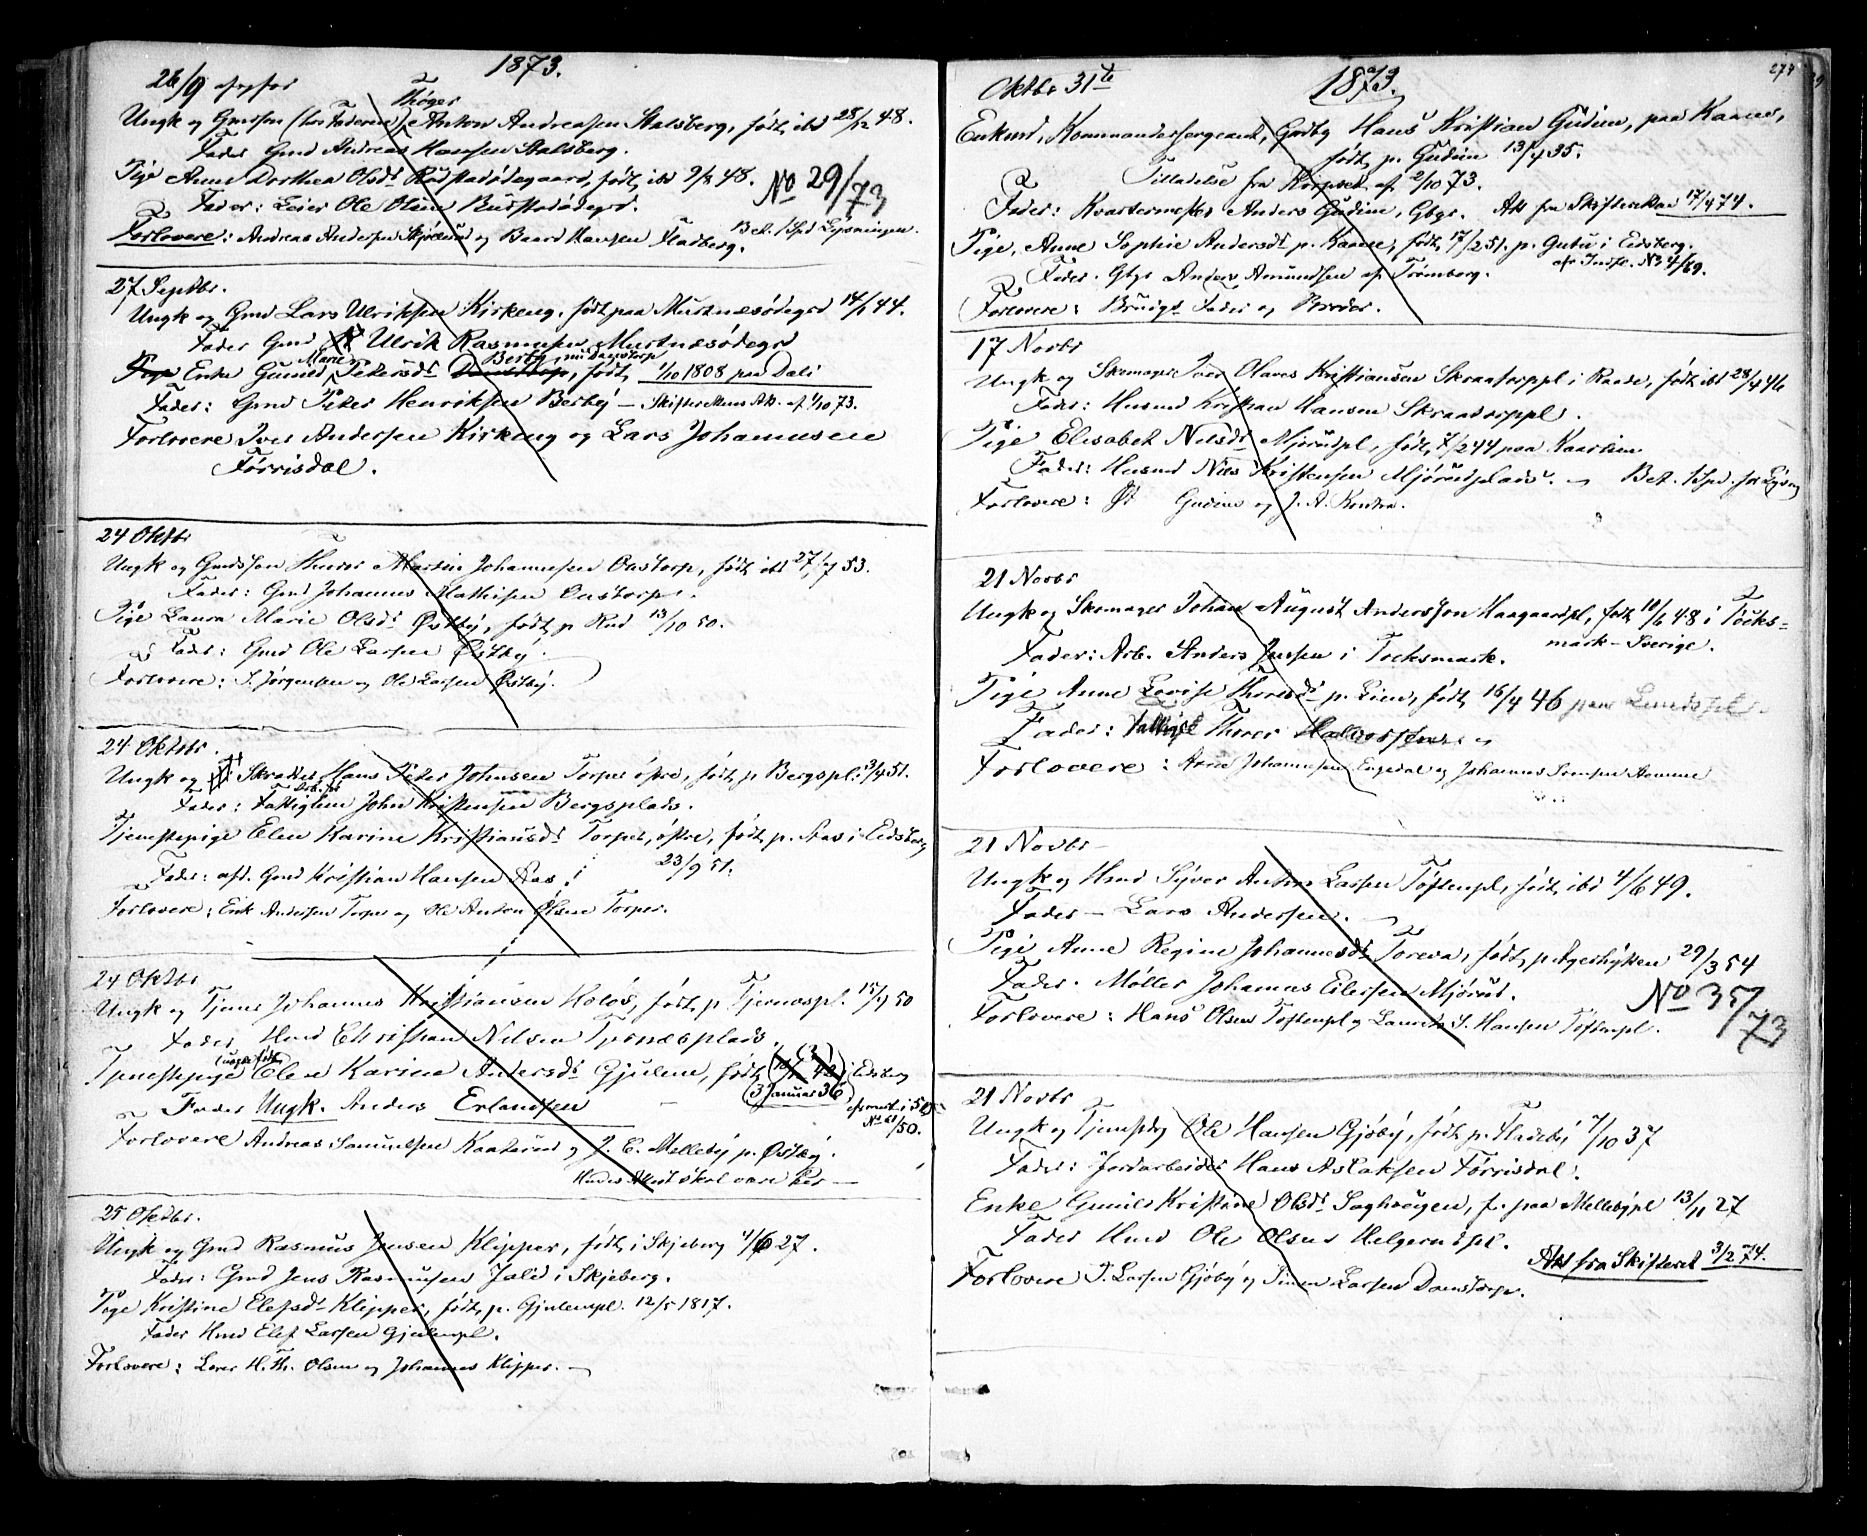 1873.
26/9
Thøger
Ungk og Gmdsøn (hos Faderen) Anton Andreasen Aalsberg, født ibd 28/12 48.
Fader Gmd Andreas Hansen Aalsberg.
Pige Anne Dorthea Olsdr Rudstadødegaard, født ibd 9/ 48. No 29/73
Fader: Leier Ole Olsen Rudstadødegd.
Forlovere: Andreas Andersen og Baard Hansen Fladberg. Bet. 1 Spd Lysningen.
27 Septbr.
Ungk og Gmd Lars Ulriksen Kirkeng, født paa Murtnæsødegd 14/1 44.
Fader Gmd Ulrik Rasmusen Murtnæsødegd
Marie Berby, nu Damstorp
Enke Gunild Petersdr født 1/10 1808 paa Dali
Fader: Gmd Peter Henriksen Berby – Skifter Att. af 1/10 73.
Forlovere Iver Andersen Kirkeng og Lars Johannesen
Førrisdal.
24 Oktbr
Ungk og Gmdssøn Thurer Martin Johannesen Onstorp, født ibd 27/7 53.
Fader: Gmd Johannes Mathisen Onstorp.
Pige Laura Marie Olsdr Østby, født p Rud 13/10 50.
Fader: Gmd Ole Larsen Østby.
Forlovere: S. Jørgensen og Ole Larsen Østby.
24 Oktbr.
Ungk og Skrædder Hans Peder Johnsen Torper øfre, født p Bergspl. 3/4 51.
Fader: Fattiglem John Kristensen Bergsplads.
Tjenestepige Elen Karine Kristiansdr Torper, østre, født p. Aas i Eidsberg
23/9 51.
Fader: afd. Gmd Kristian Hansen Aas.
Forlovere: Erik Andersen Torper og Ole Anton Olsen Torper.
24 Oktbr
Ungk og Tjener Johannes Kristiansen Holøs, født p Tjernæspl. 15/9 50
Fader Hmd Christian Nilsen Tjernæsplads.
(uægte født)
Tjenestepige Elen Karine Andersdr Gjulem, født i Eidsberg
(3 Januar 36)
Fader Ungk. Anders Erlandsen
No 61/50.
Forlovere Andreas Samuelsen Kaaterud og J. E. Melleby p. Østby.
skal være her —
25 Oktbr.
Ungk og Gmd Rasmus Jensen Klipper, født i Skjeberg 4/6 27.
Fader: Gmd Jens Rasmussen Jalid i Skjeberg.
Pige Kristine Elefsdr Klipper, født p. Gjulemspl. 12/5 1817.
Fader Hmd Elef Larsen Gjulempl.
Forlovere: Lærer H. Th. Olsen og Johannes Klipper.
Oktbr 31te
1873.
273
Enkmd, Kommandersergeant, Gmd Hans Kristian Gudim, paa Kaane,
født p. Gudim 13/4 35.
Tilladelse fra Korpset af 2/10 73.
Fader: Kvartermester Anders Gudim, Gbgr. Att fra Skifteretten 17/4 74.
Pige, Anne Sophie Andersdr p. Kaane, født 17/2 51. p. Gutu i Eidsberg.
Fader. Gbgr Anders Amundsen af Trømborg. No 4/69.
Forlovere: Brudgs Fader og Broder.
17 Novbr
Ungk og Skomager Iver Olaves Kristiansen Skraatorppl i Raade, født ibd 28/4 46
Fader: Husmd Kristian Hansen Skraatorppl.
Pige Elisabet Nilsdr Mjørudpl, født 7/2 44 paa
Fader: Husmd Nils Kristensen Mjørudplads. Bet. 1 Spd. for Lysng
Forlovere: Gudim og J. A.
21 Novbr
Ungk og Skomager Johan August Andersson Haagaardpl, født 10/6 48 i Tøcks=
mark – Sverige.
Fader: Arb. Anders Jensen i Tocksmark.
Pige Anne Lovise Thoresdr p. Lien, født 16/4 46 paa Lundspl.
Fader: Thorer Halvorsen
Forlovere: Arne Johannesen Engedal og Johannes Svensen
21 Novbr
Ungk og Hmd Syver Anton Larsen Tøftenpl, født ibd 4/6 49.
Fader – Lars Andersen.
Pige Anne Regine Johannesdr Toreva, født p. Agerhytten 29/3 54
Fader. Møller Johannes Eilersen Mjørud. No 35/73
Forlovere: Hans Olsen Toftenpl og Laurits S. Hansen Tøftenpl.
21 Novbr
Ungk og Ole Hansen Gjøby, født p. Fladeby 7/10 37
Fader: Jordarbeider Hans Aslaksen Førrisdal.
Enke Gunild Kristine Olsdr Saghougen, f. paa Mellebypl 13/11 27
Fader Hmd Ole Olsen Helgerudpl.
Att fra Skifteret 3/2 74.
Forlovere P. Larsen Gjøby og Simen Larsen Damstorp.